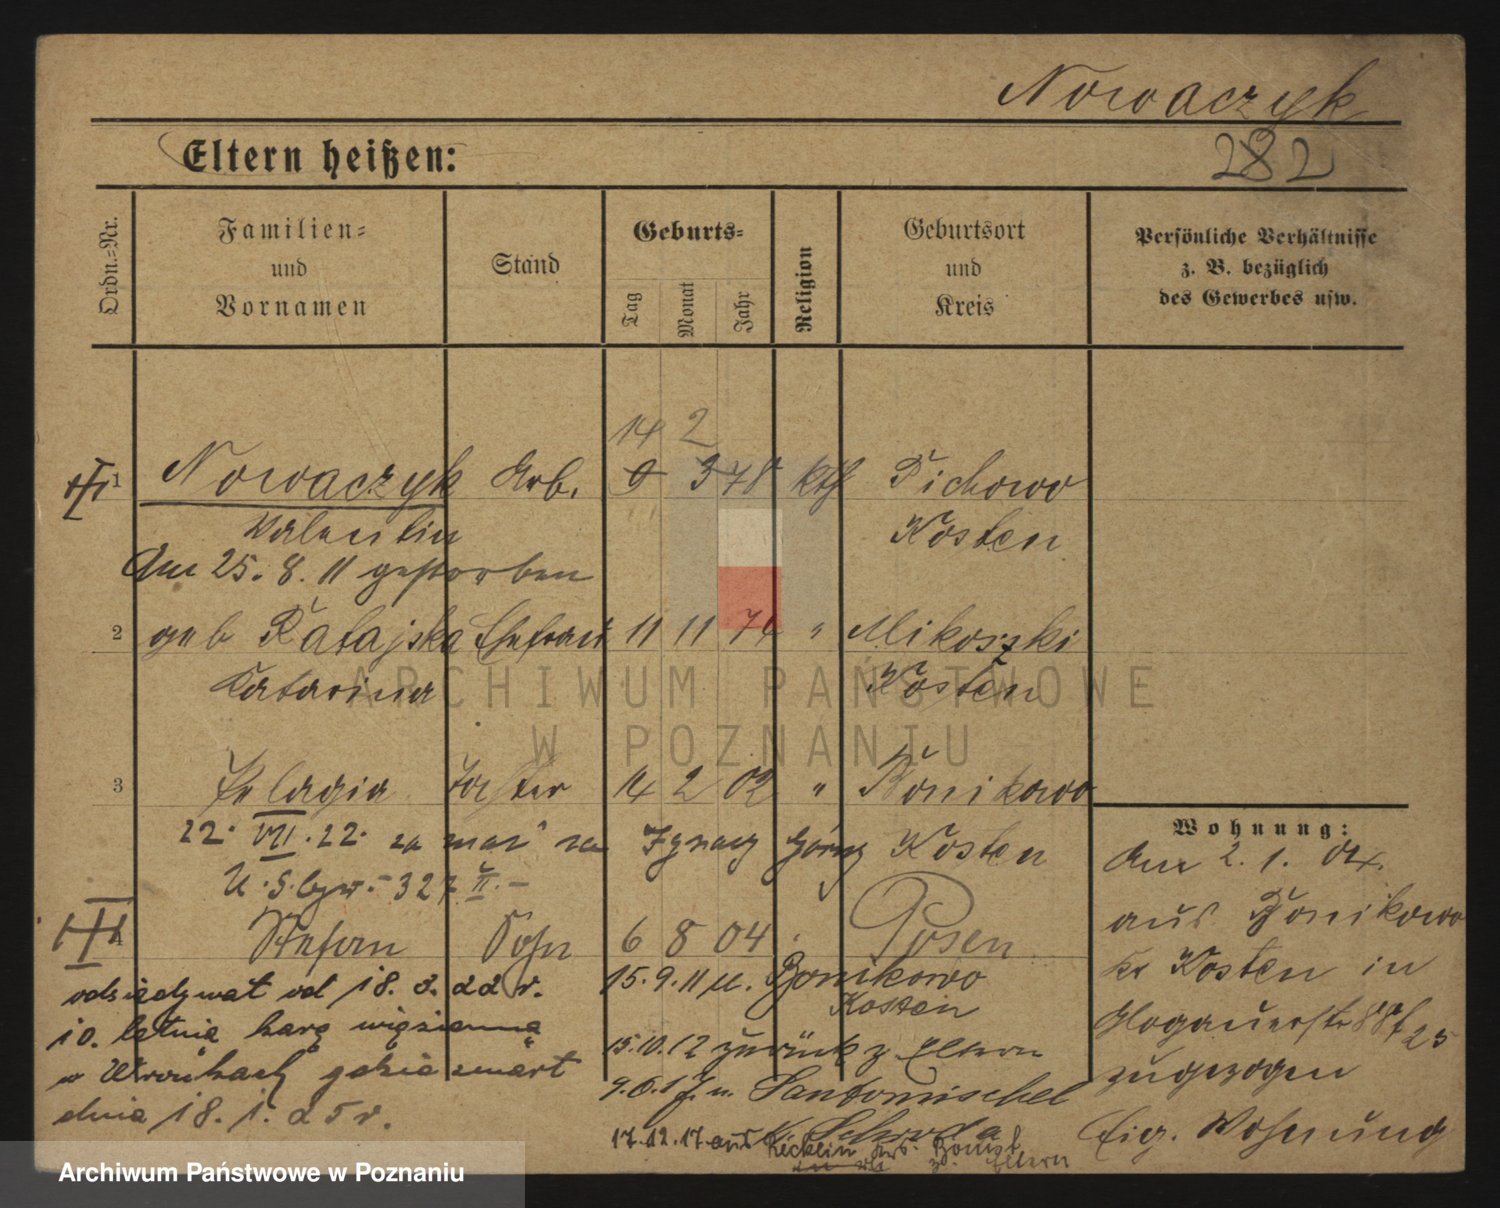 Nowaczyk
282
Eltern heißen:
Ordn.-Nr.
Familien-
und
Vornamen
Stand
Geburts-
Tag
Monat
Jahr
Religion
Geburtsort
und
Kreis
Persönliche Verhältnisse
z. B. bezüglich
des Gewerbes usw.
14 2
1 Nowaczyk Arb. 9 3 78 kth Pichowo
Valentin Kosten
Am 25. 8. 11 gestorben
2 geb Ratajska Ehefrau 11 11 74 " Mikoszki
Katarina Kosten
3 Pelagia Tochter 14 2 02 " Bonikowo
22. VII. 22. za mąż za Ignacy Górny Kosten
U.S. 327 II. -
4 Stefan Sohn 6 8 04 Posen
15.9.11 n. Bonikowo
Kosten
15.10.12 zurück z. Eltern
9.6.17 n. Santomischel
Schroda
17.12.17 aus Krs. Bomst
zu Eltern
odsiedywał od 18. 3. 22 r.
10. letnią karę więzienną
w Wronkach gdzie zmarł
dnia 18. 1. 25 r.
Wohnung:
Am 2. 1. 04.
aus Bonikowo
Kr Kosten in
Glogauerstr 88 f 25
zugezogen
Eig. Wohnung
ARCHIWUM PAŃSTWOWE
W POZNANIU
Archiwum Państwowe w Poznaniu